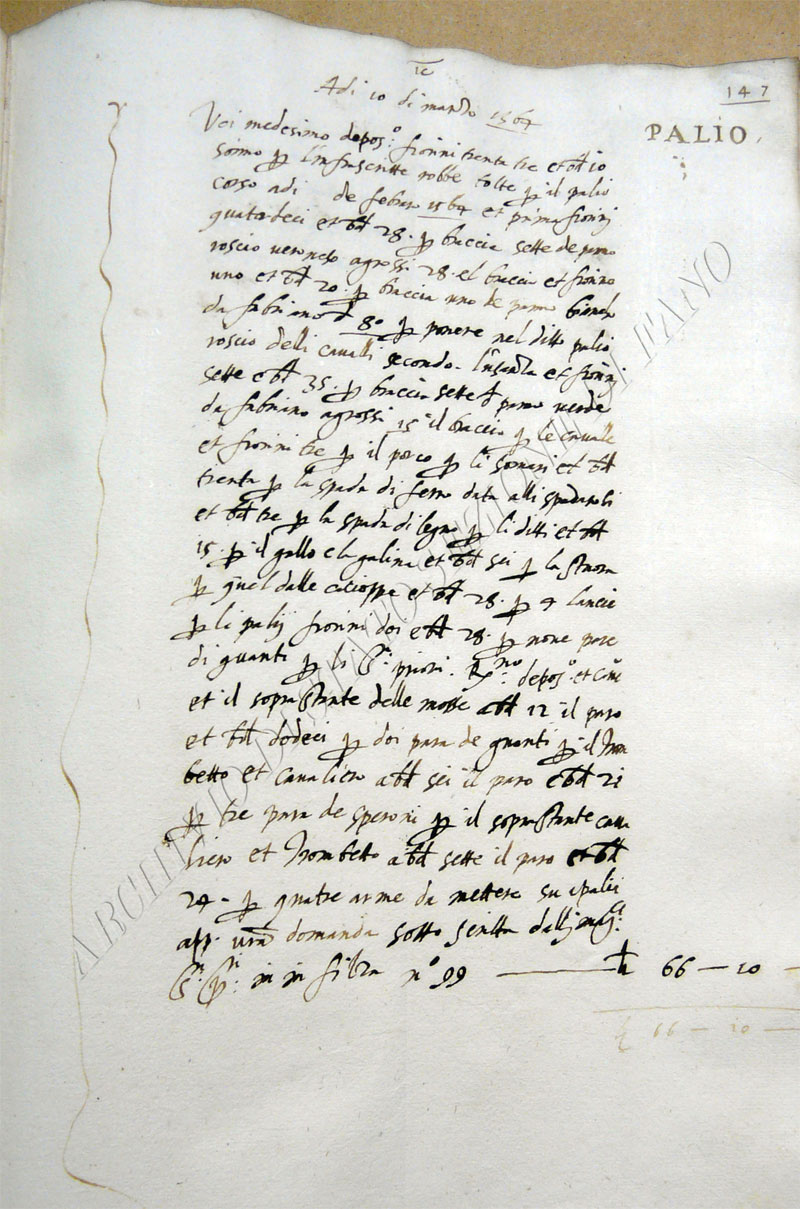 147
Adi 10 di marzo 1564
PALIO
Voi medesimo depos.º fiorini trenta tre et bl 10
sonno p l'infrascritte robbe tolte p il palio
corso adi de febraro 1564 et prima fiorini
quatordeci et bl 28. p braccia sette de panno
roscio veronese a grossi 28. el braccio et fiorino
uno et bl 20. p braccia uno de panno biancho
da fabriano p ponere nel ditto palio
roscio delli cavalli secondo l'usanza et fiorini
sette e bl 35. p braccia sette d panno verde
da fabriano a grossi 15 il braccio p le cavalle
et fiorini tre p il porco p li somari et bl
trenta p la spada di ferro data alli spadaroli
et bl tre p la spada di legno p li ditti et bl
15. p il gallo e la galina et bl sei p la
p quel dalle et bl 28. p 4 lancie
p li palij fiorini doi e bl 28. p nove para
di guanti p li S.ri priori. depos.º et
et il soprastante delle mosse a bl 12 il paro
et bl dodeci p doi para de guanti p il trom
betto et cavaliero a bl sei il paro e bl 21
p tre para de speroni p il soprastante cava
liero et trombetto a bl sette il paro et bl
24 - p quatre arme da mettere su i palii
app. domanda sotto scritta dalli mag.ci
S.ri in filza nº 99 — 66 — 10 —
66 — 10 —
ARCHIVIO DI STATO SEZIONE DI FANO